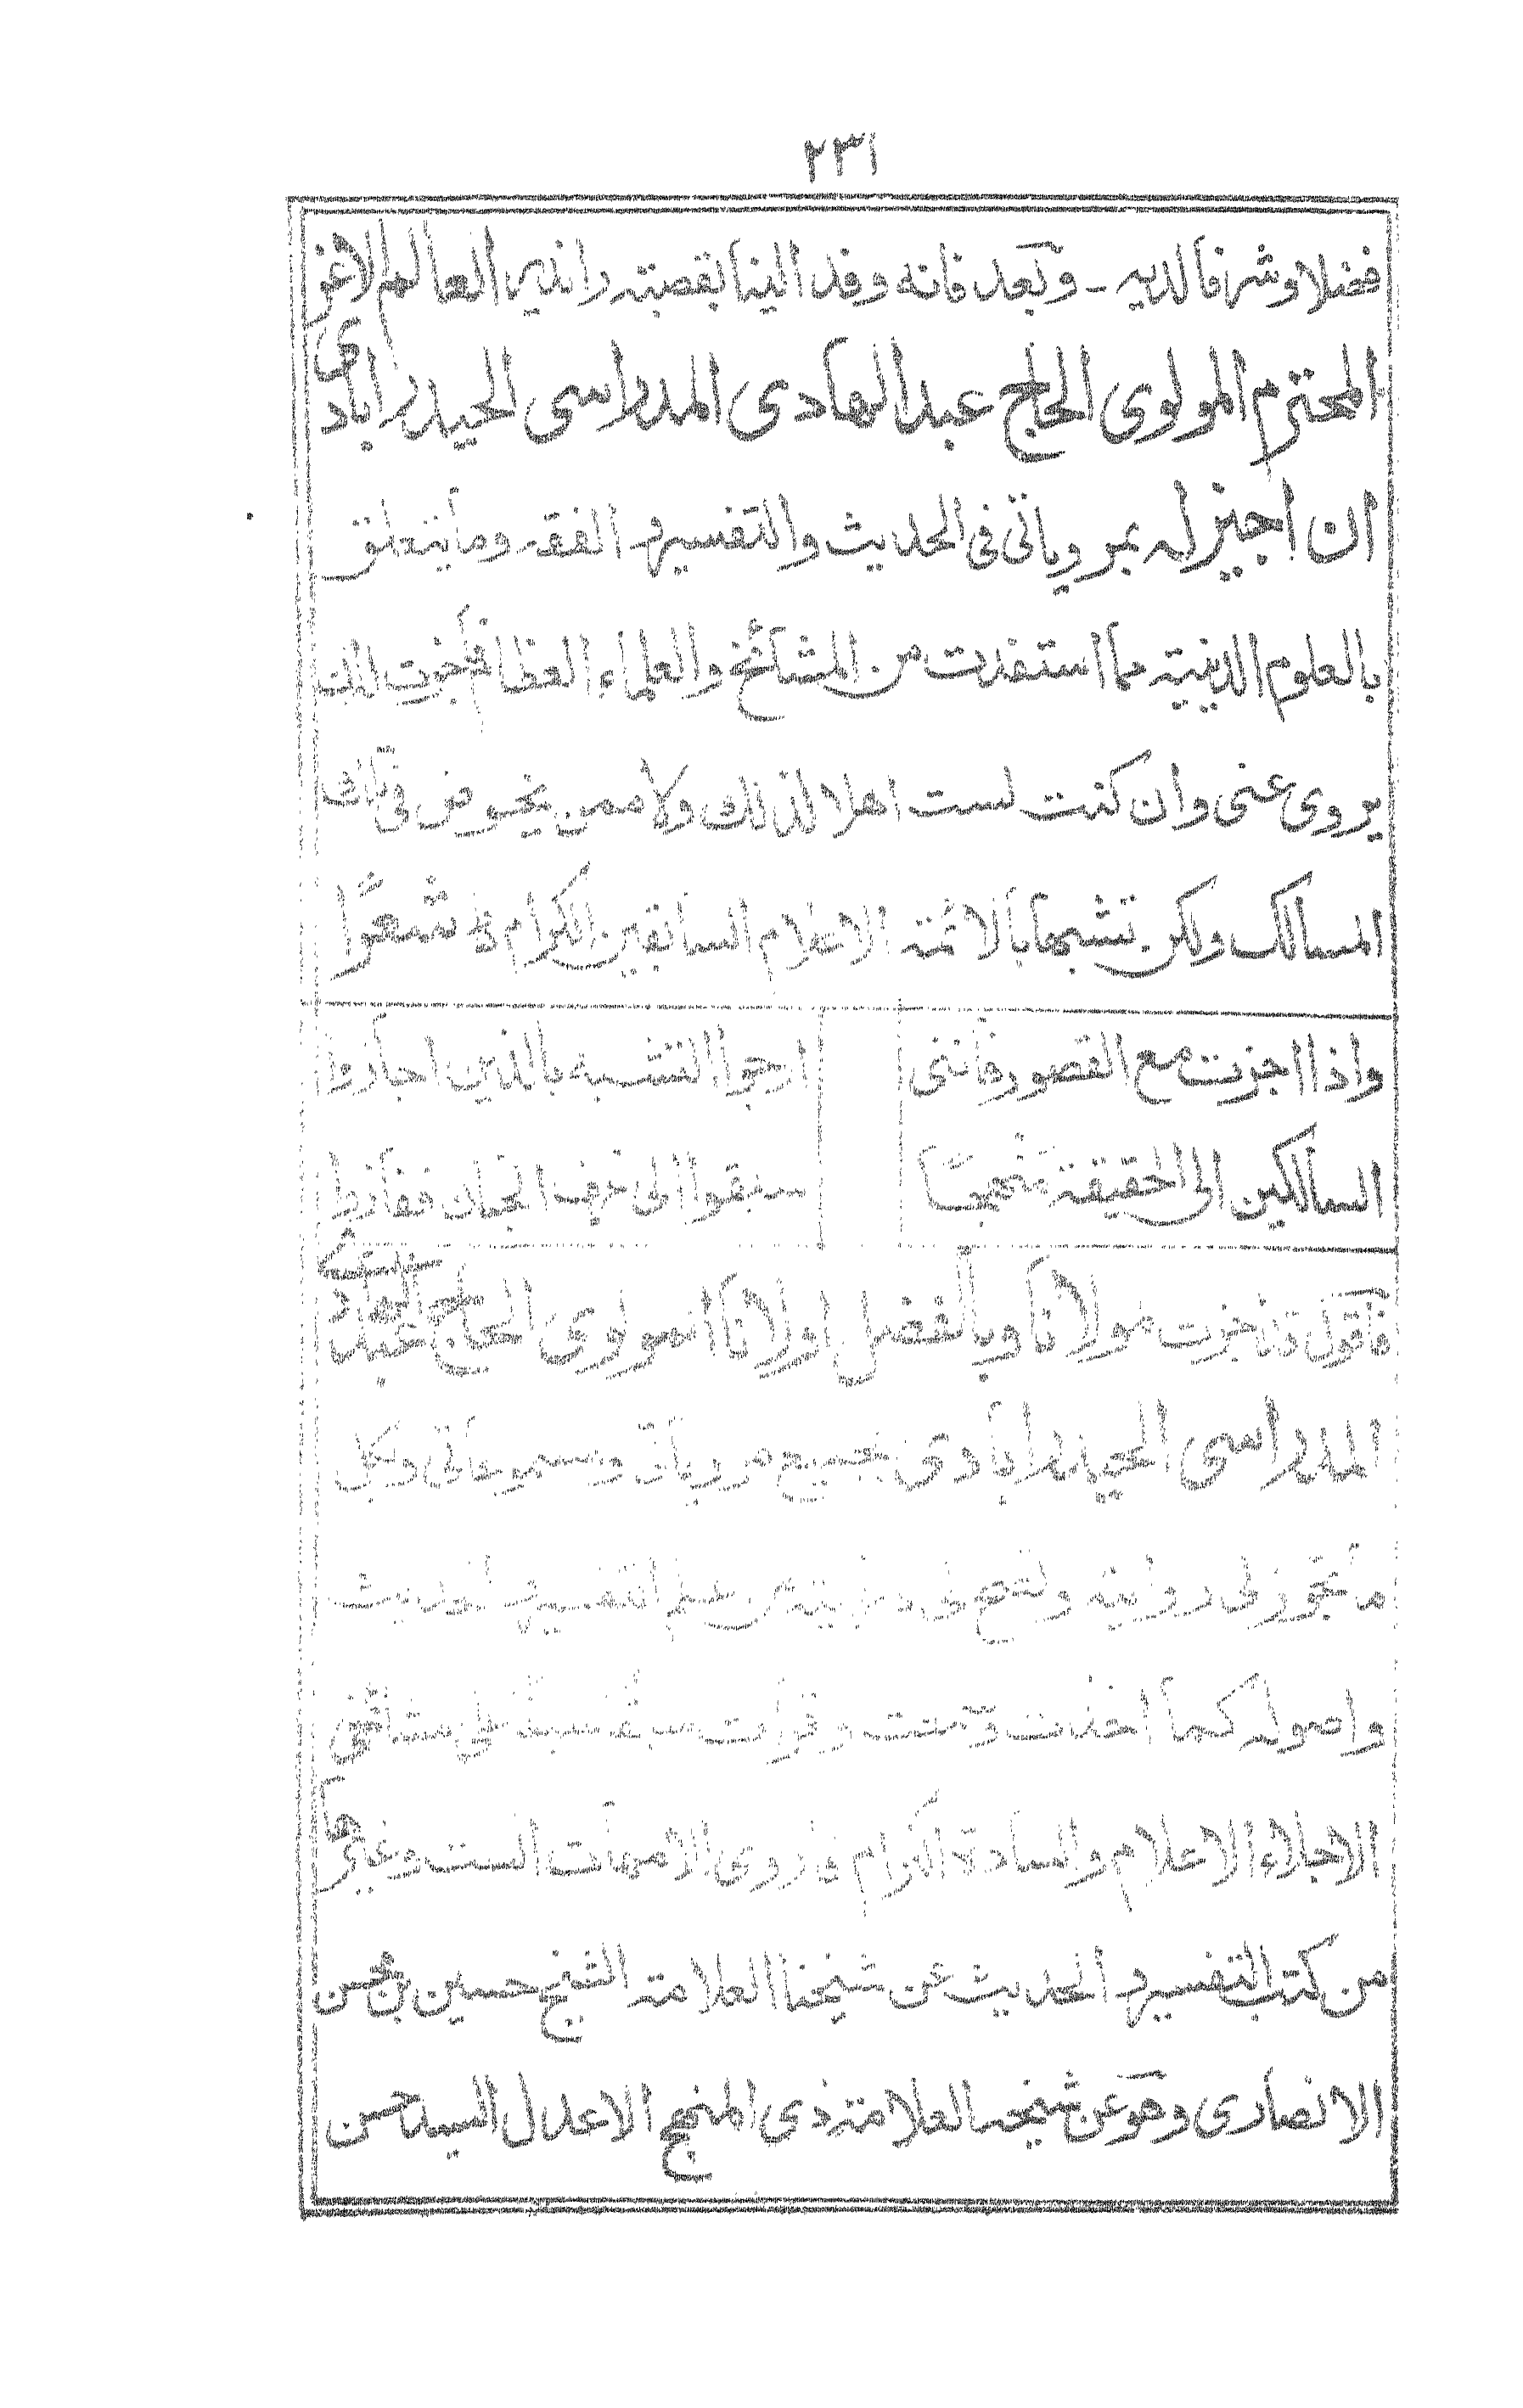 ٢٣١
فضلا وشرفا لديه - وبعد فانه وفد الينا بقصبته راندير العالم الاغر
المحترم المولوى الحاج عبد الهادى المدراسى الحيدرابادى
ان اجيزله بمروياتى فى الحديث والتفسير و الفقه وما يتعلق
بالعلوم الدينية مما استفدت من المشائخ والعلماء العظام فأجزت له ان
يروى عنى وان كنت لست اهلا لذلك ولا ممن يخوض فى تلك
المسالك ولكن تشبها بالائمة الاعلام السابقين الكرام شعرا
واذا اجزت مع القصور فاننى ارجوا التشبه بالذين اجازوا
السالكين الى الحقيقة منهجًا سبقوا الى غرف الجنان ففازوا
فاقول قد اجزت مولانا وبالفضل اولانا المولوى الحاج عبد الهادى
المدراسى الحيدرابادى بجميع مروياتى ومسموعاتى وبكل
ما تجوز لى روايته وتصح لى درايته من علم التفسير و الحديث
واصوله كما اخذت وسمعت وقرأت على مشائخى
الاجلاء الاعلام والسادة الكرام فأروى الامهات الست وغيرها
من كتب التفسير و الحديث عن شيخنا العلامة الشيخ حسين بن محسن
الانصارى وهو عن شيخه العلامة ذى المنهج الاعدل السيد حسن